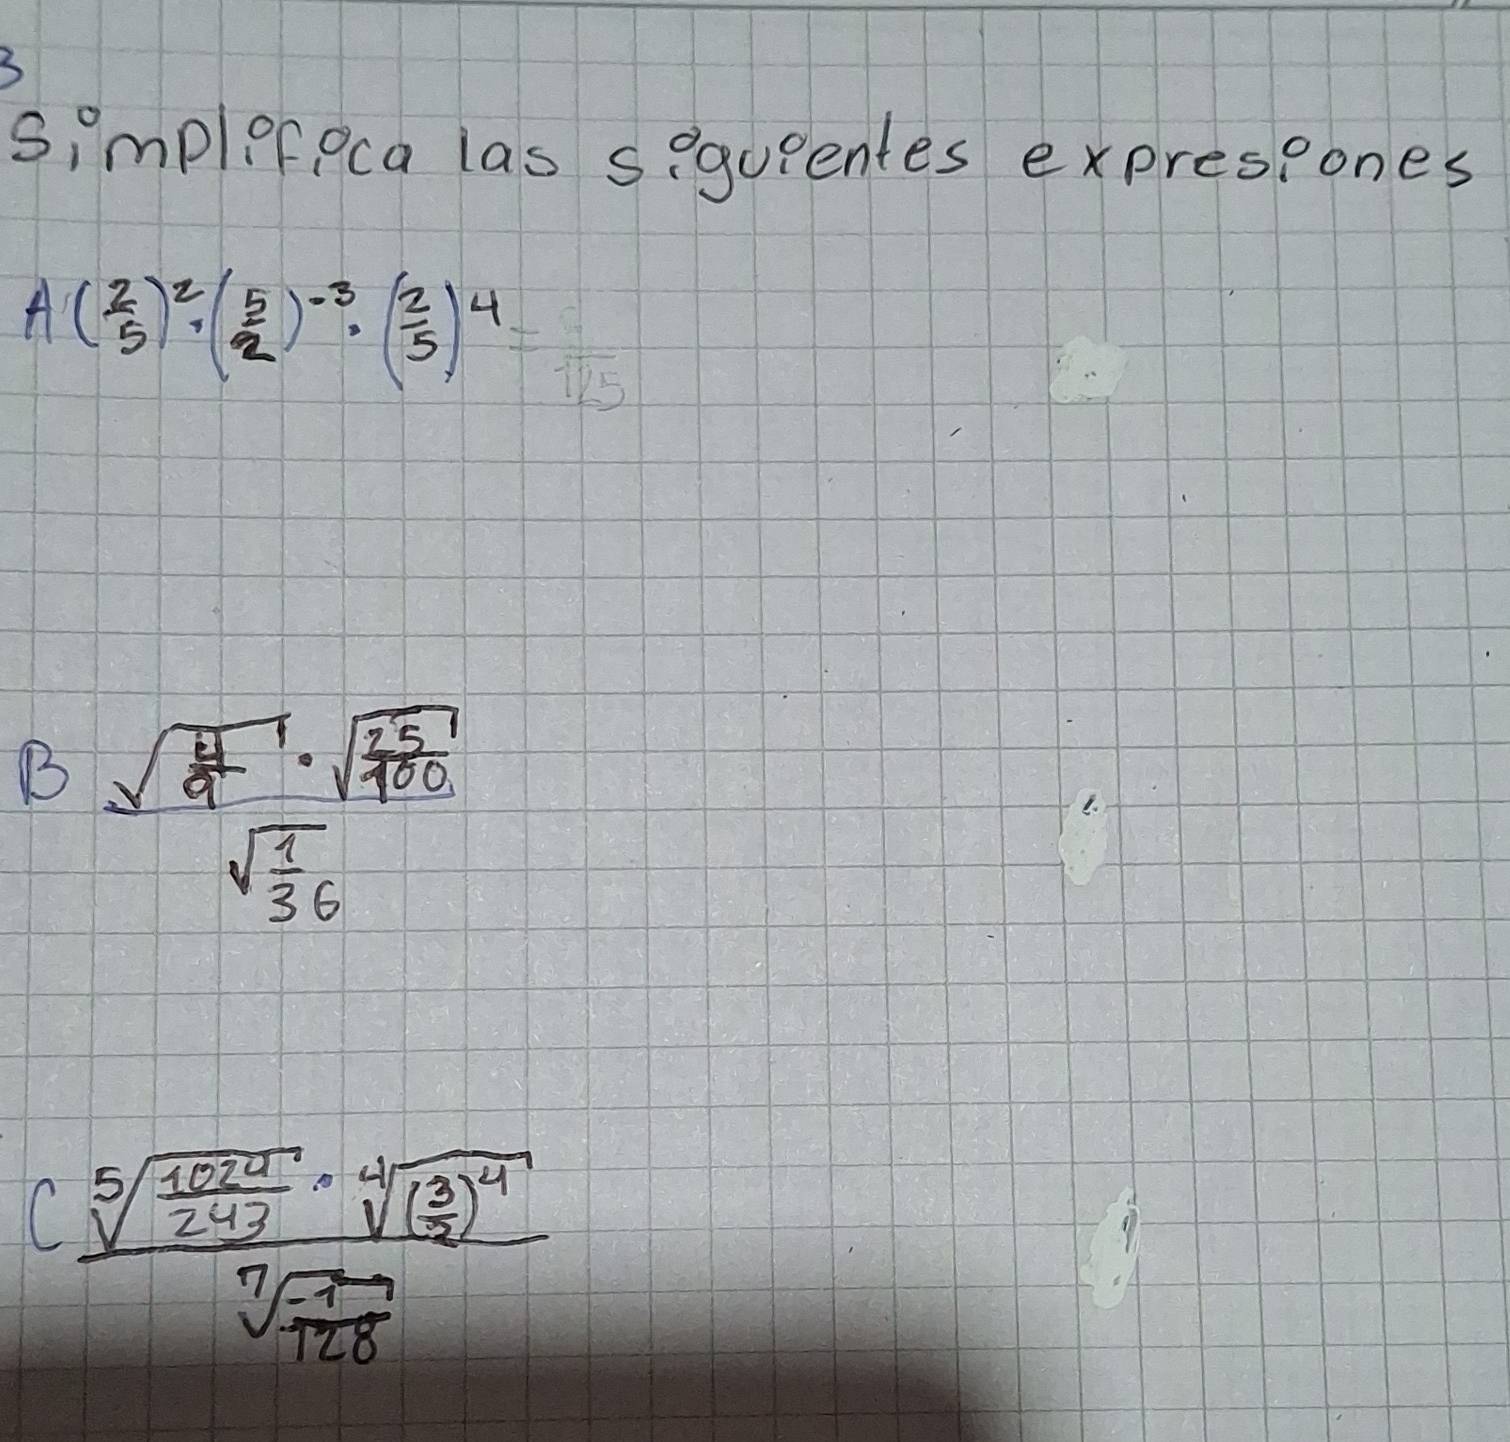 3
Simplifica las siguientes expresiones
A (2/5)² · (5/2)⁻³ · (2/5)⁴ = /125
B √(4/9) · √(25/100)
√(1/36)
C ⁵√(1024/243) · ⁴√((3/5)⁴)
⁷√(-1/128)